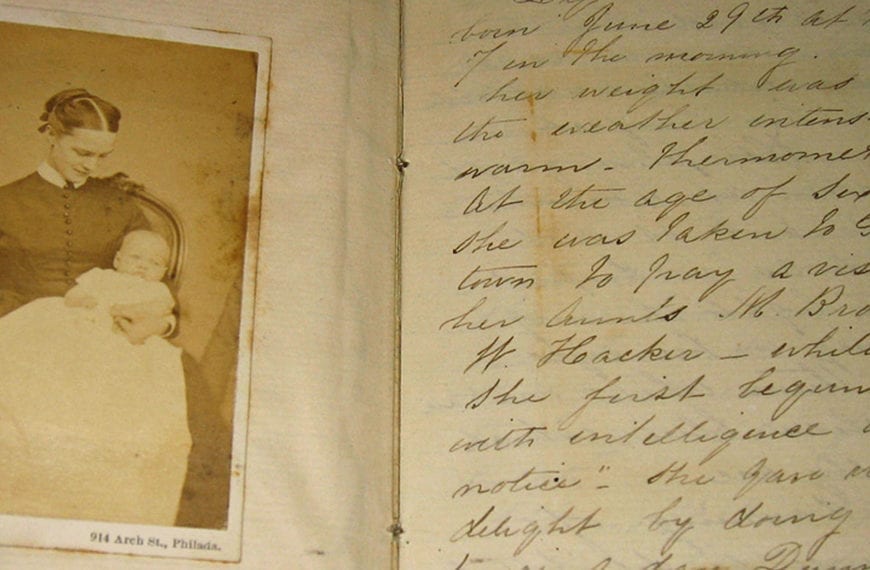 914 Arch St., Philada.
born June 29th at
7 in the morning.
her weight was
the weather intens-
warm - thermomet
At the age of
she was taken to G
town to pay a vis
her aunts M. Bro
W. Hacker - while
she first begun
with intelligence
notice" - she gave
delight by doing